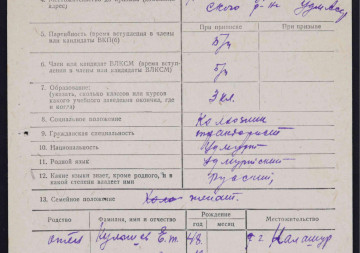 адрес)
ского р-на Удм. Асср
При приписке При призыве
5. Партийность (время вступления в члены
или кандидаты ВКП(б)
Б/п
6. Член или кандидат ВЛКСМ (время всту-
пления в члены или кандидаты ВЛКСМ)
Б/п
7. Образование:
(указать, сколько классов или курсов
какого учебного заведения окончил, где
и когда)
3 кл.
8. Социальное положение
Колхозник
9. Гражданская специальность
10. Национальность
Удмурт
11. Родной язык
Удмуртский
12. Какие языки знает, кроме родного, и в
какой степени владеет ими
Русский,
13. Семейное положение:
женат.
Родство Фамилия, имя и отчество Рождение Местожительство
год месяц
отец 48